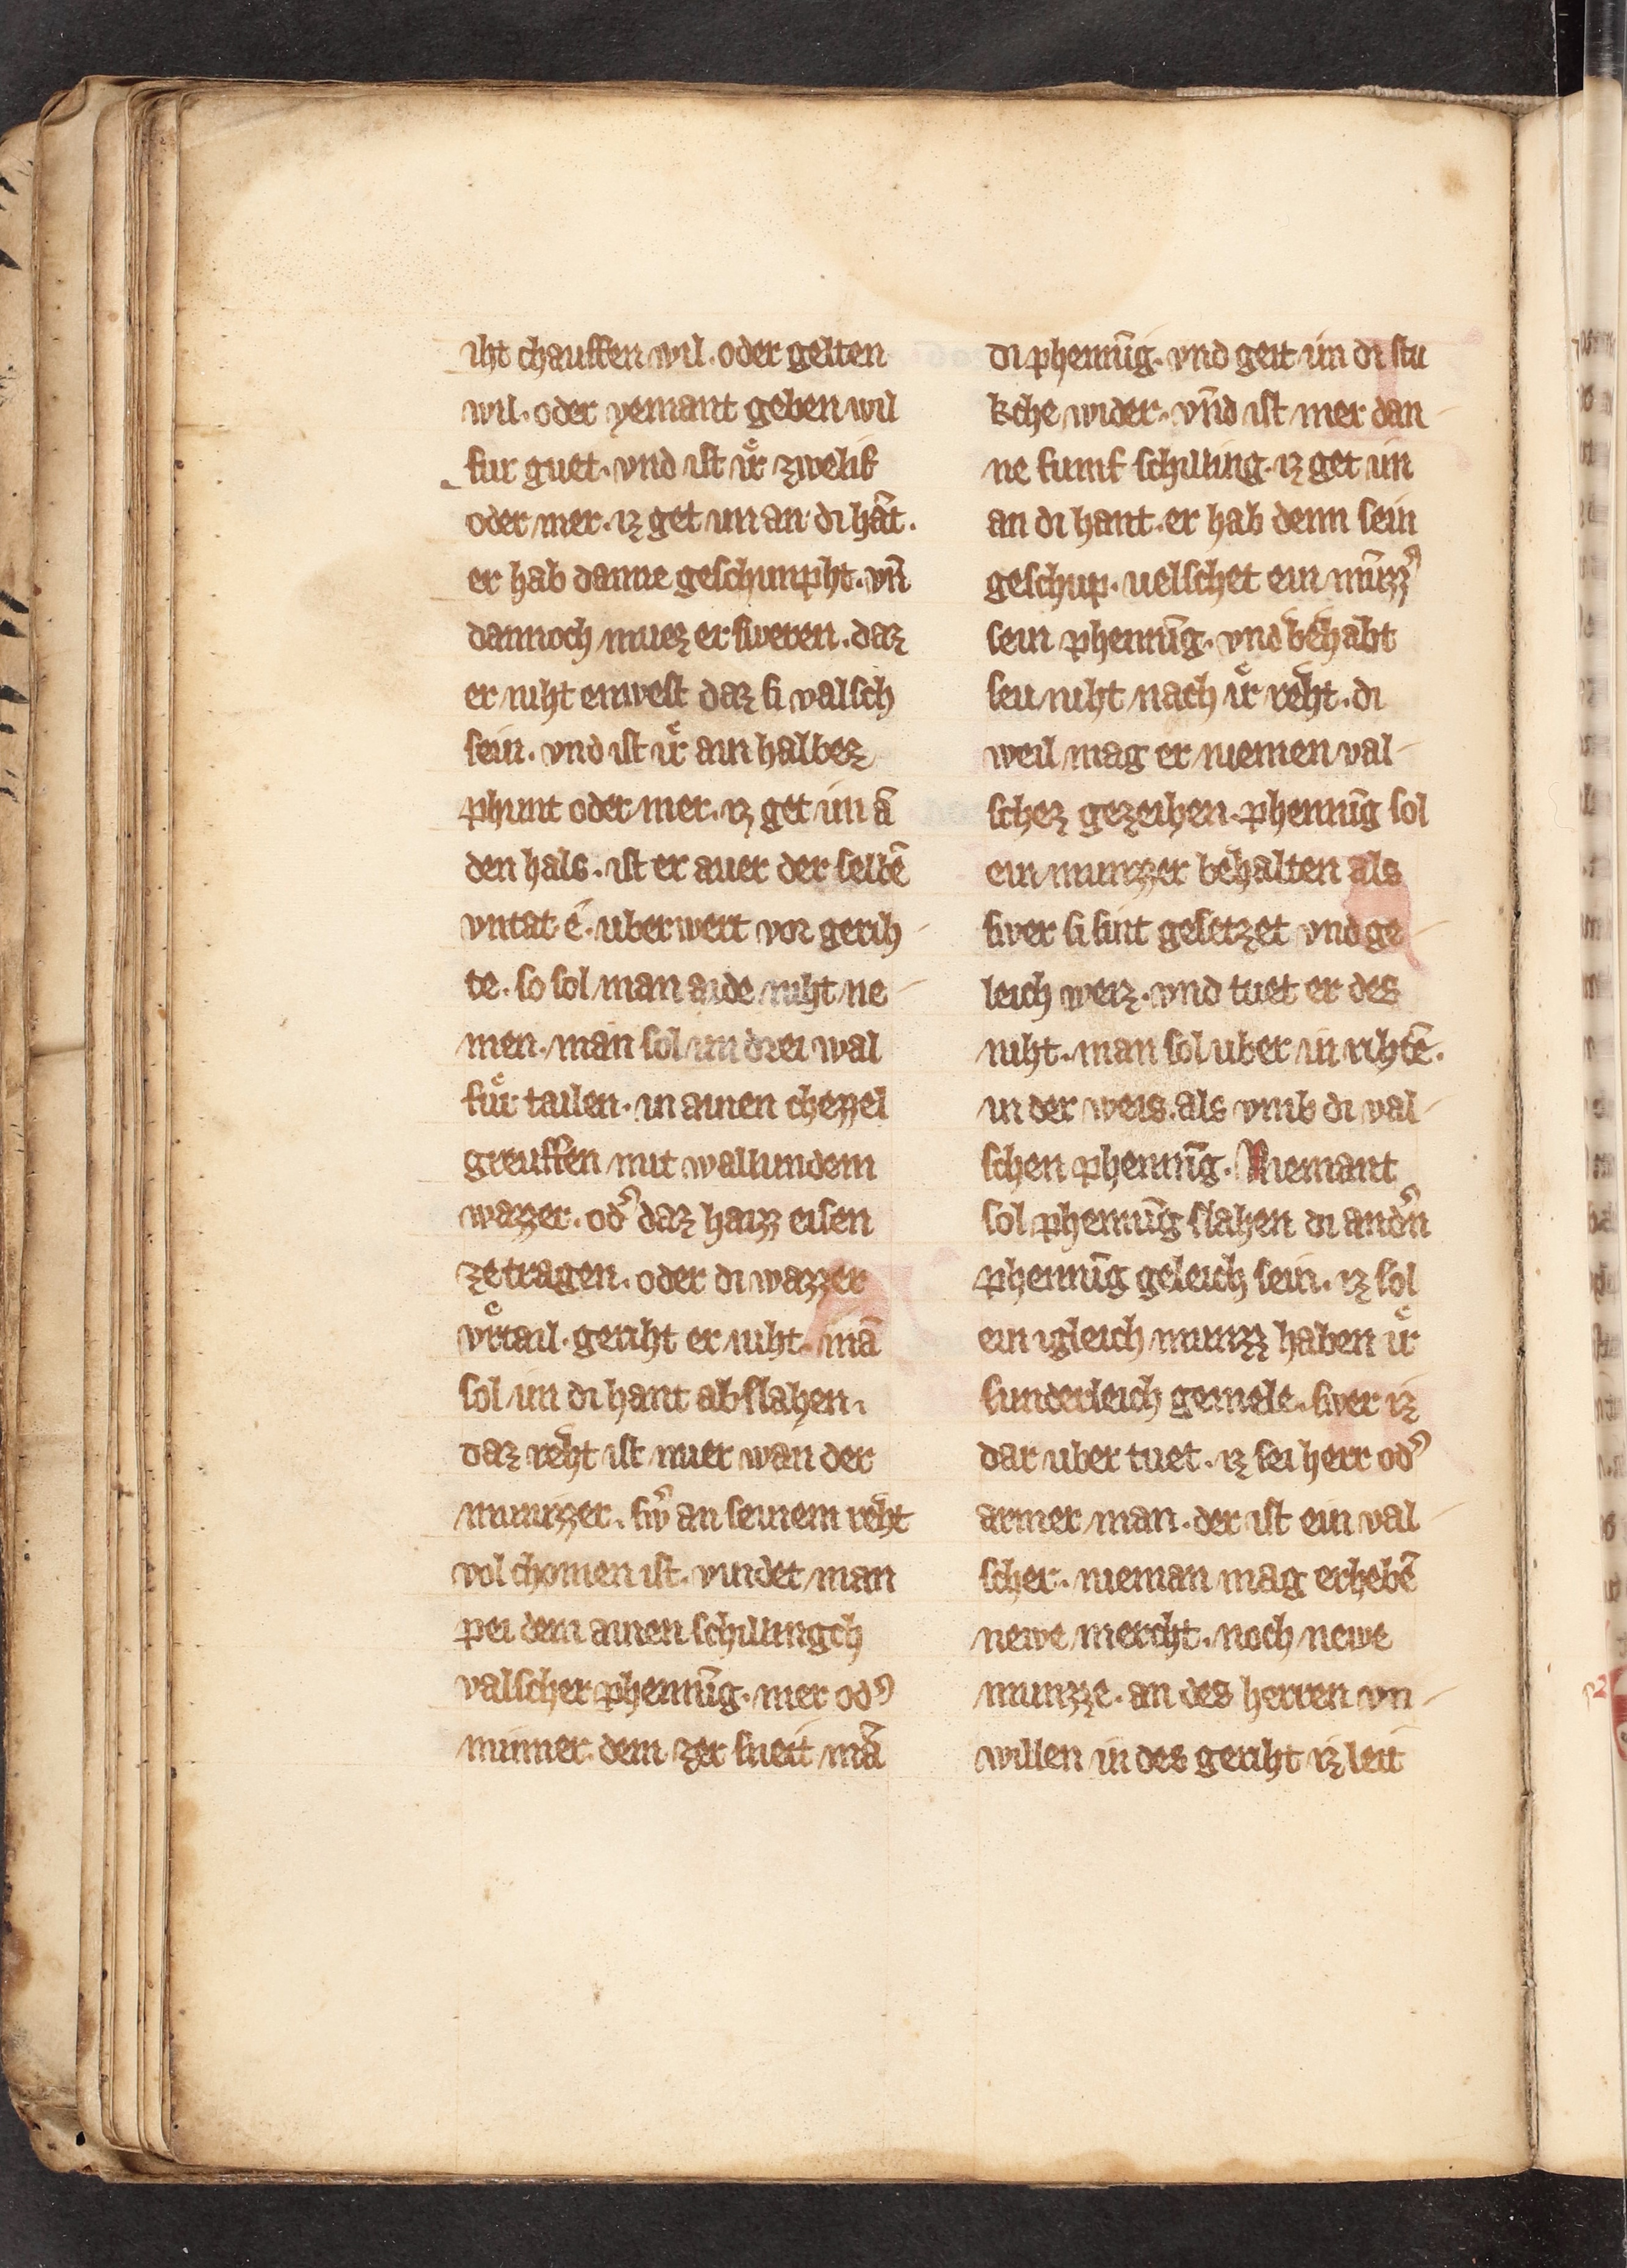 iht chauffen wil. oder gelten
wil. oder yemant geben wil
fur guet. vnd ist iͤr zwelif
oder mer. iz get im an di hãt.
er hab danne geschimpht. vñ
dannoch muez er sweren. daz
er niht enwest daz si valsch
sein. vnd ist iͤr ain halbez
phunt oder mer. iz get im ã
den hals. ist er auer der selbẽ
vntat ẽ. uberwert vor gerih
te. so sol man aide niht ne
men. man sol im drei wal
fuͤr tailen. in ainen chezzel
greuffen mit wallundem
wazzer. od᾽ daz haizz eisen
ze tragen. oder di wazzer
vͤrtail. geriht er niht. mã
sol im di hant ab slahen.
daz reht ist nuer wan der
munizzer. sw᾽ an seinem reht
vol chomen ist. vindet man
pei dem ainen schillingch
valscher phennĩg. mer od᾽
minner. dem zer sneit mã
di phennĩg. vnd geit im di stu
kche wider. vñd ist mer dan
ne fumf schilling. iz get im
an di hant. er hab denn sein
geschup. uelschet ein mũzz᾽
sein phennĩg. vnd behabt
seu niht nach iͤr reht. di
weil mag er niemen val
schez gezeihen. phennĩg sol
ein munzzer behalten als
swer si sint gesetzet vnd ge
leich weiz. vnd tuet er des
niht. man sol uber in rihtẽ.
in der weis. als vmb di val
schen phennĩg. Niemant
sol phennĩg slahen di and᾽n
phennĩg geleich sein. iz sol
ein igleich munzz haben iͤr
sunderleich gemele. swer iz
dar uber tuet. iz sei herr od᾽
armer man. der ist ein val
scher. nieman mag erhebẽ
newe mercht. noch newe
munzze. an des herren vn
willen in des geriht iz leit